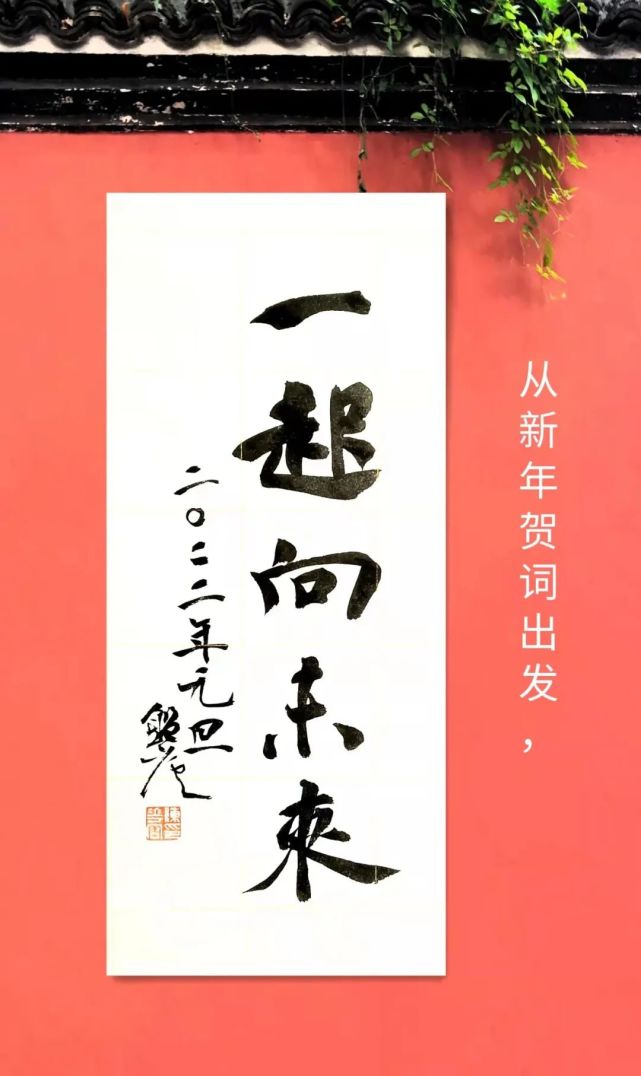 从新年贺词出发，
一起向未來
二〇二二年元旦